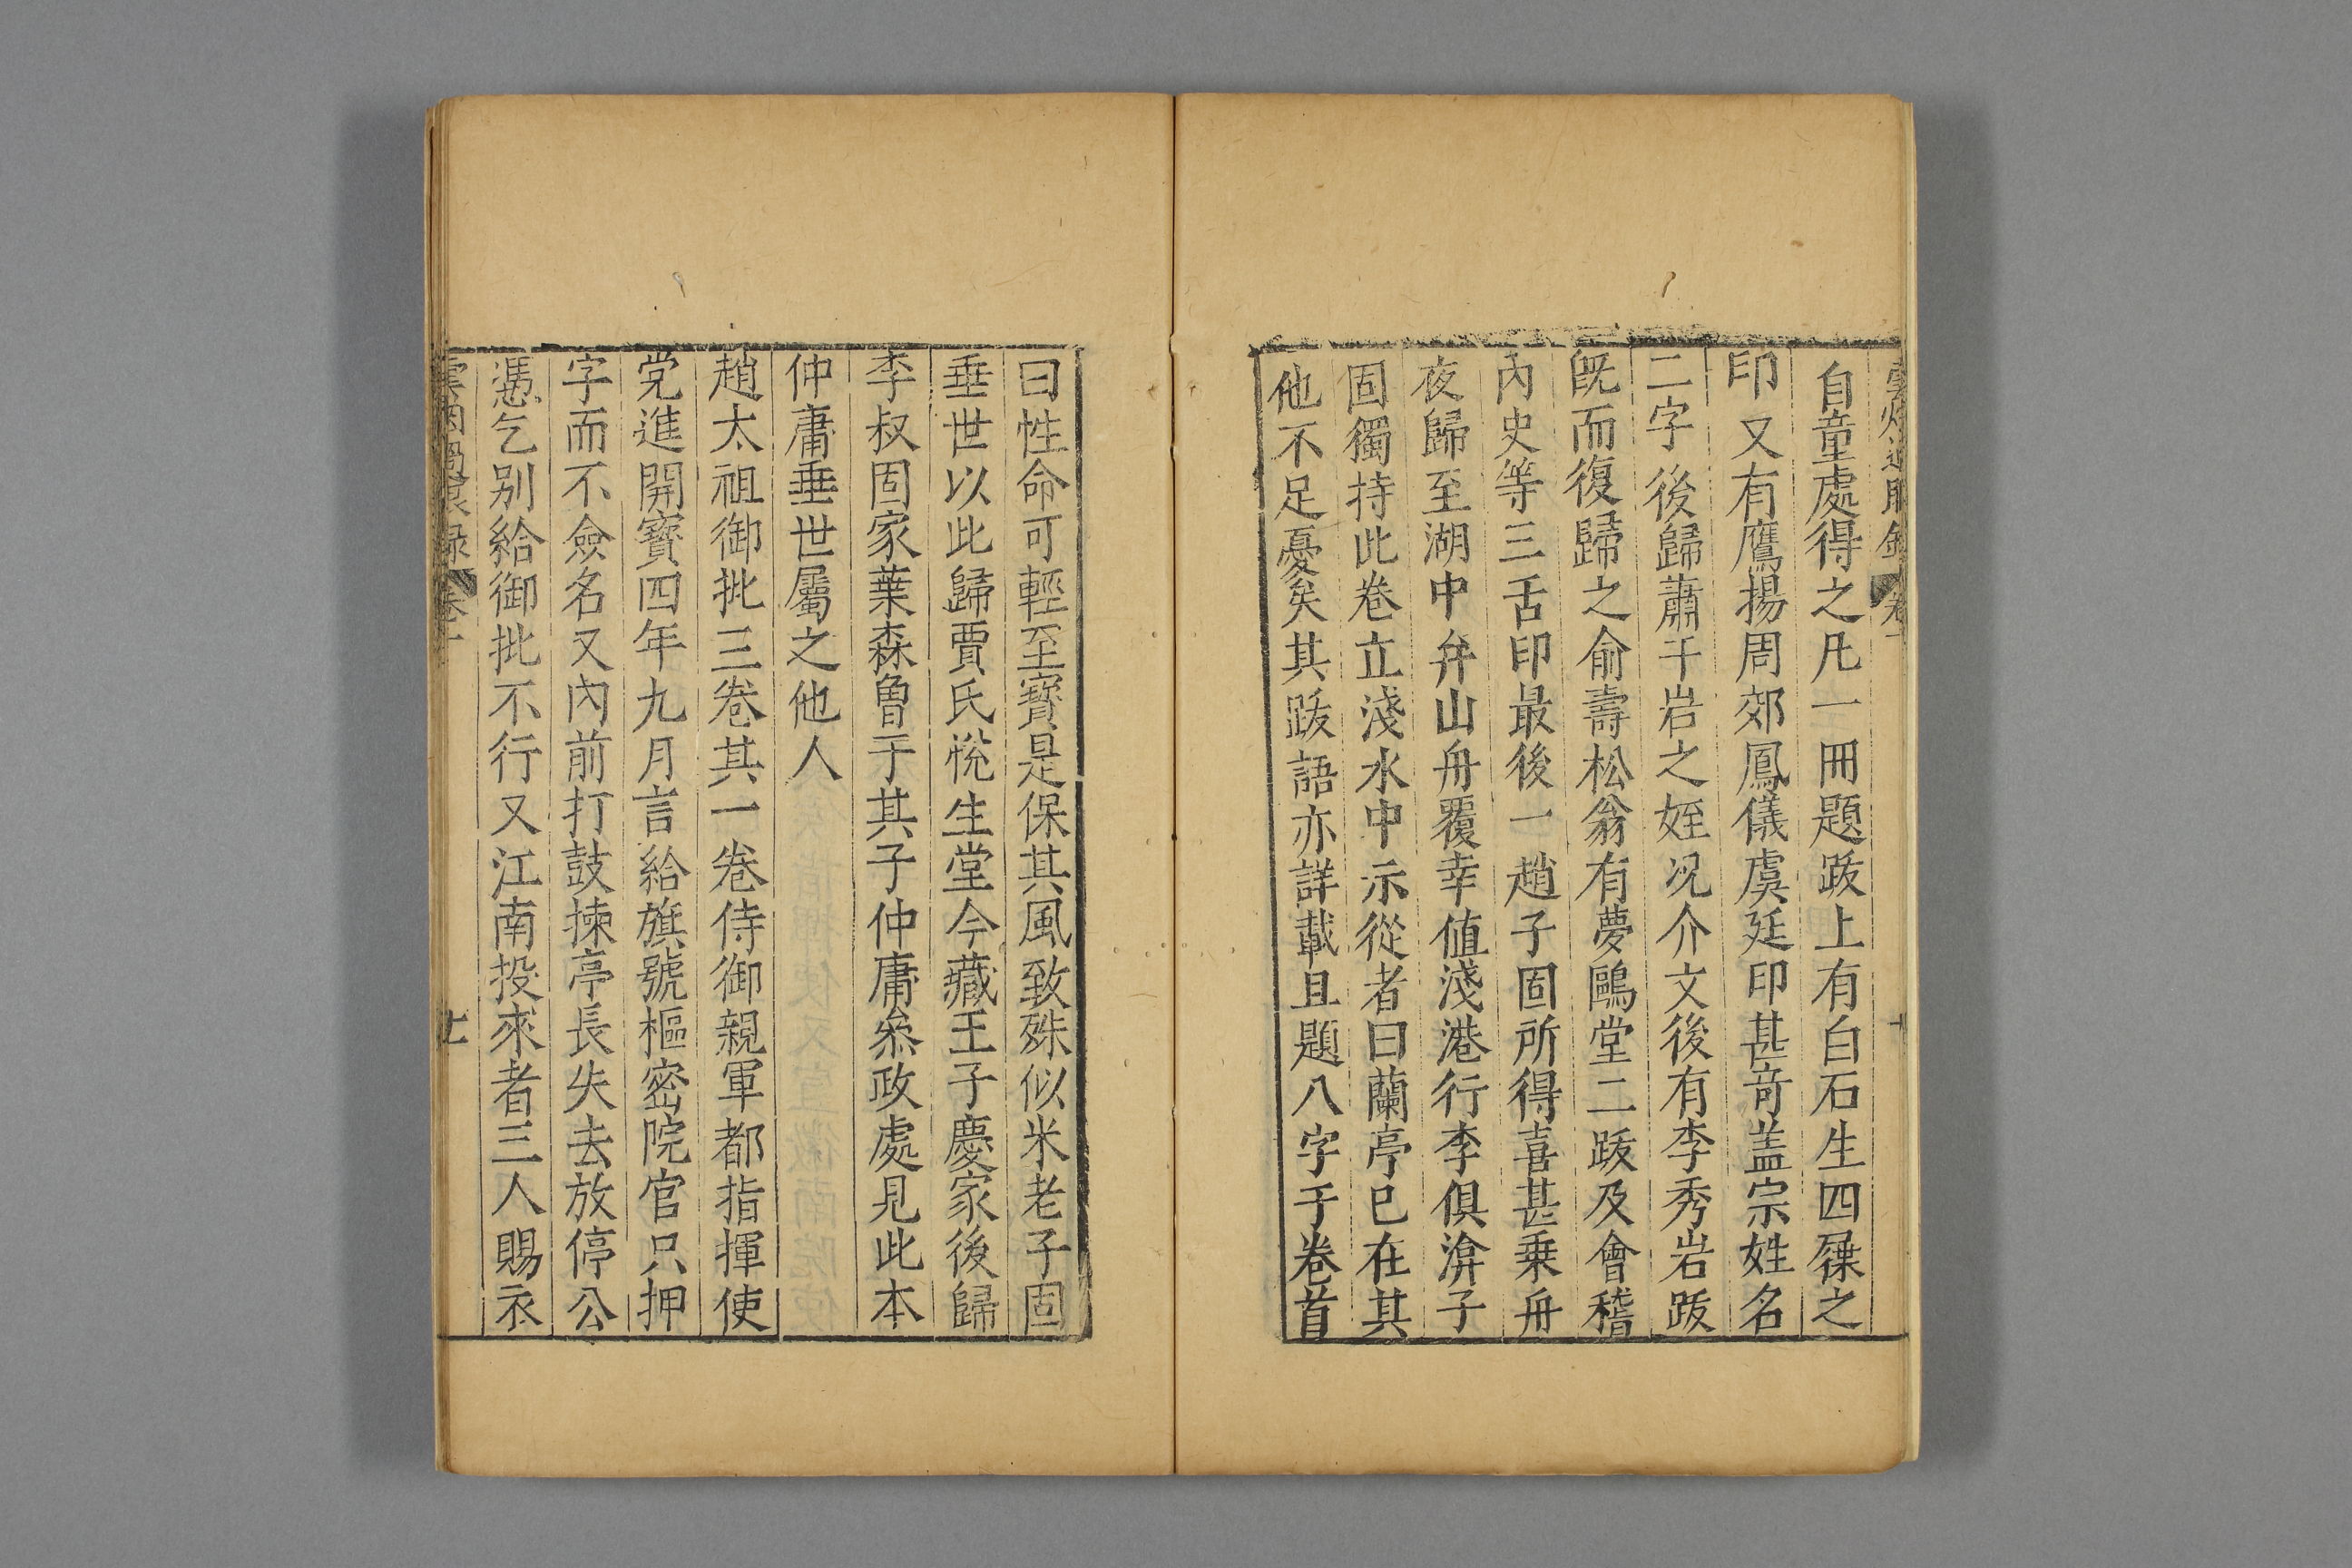 自童處得之凡一冊題跋上有白石生四屧之
印又有鷹揚周郊鳳儀虞廷印甚竒盖宗姓名
二字後歸蕭千岩之姪况介文後有李秀岩跋
既而復歸之俞壽松翁有夢鷗堂二跋及會稽
內史等三舌印最後一趙子固所得喜甚乗舟
夜歸至湖中弁山舟覆幸值淺港行李俱渰子
固獨持此卷立淺水中示從者曰蘭亭已在其
他不足憂矣其跋語亦詳載且題八字于卷首
曰性命可輕至寶是保其風致殊似米老子固
垂世以此歸賈氏悅生堂今藏王子慶家後歸
李叔固家葉森魯于其子仲庸叅政處見此本
仲庸垂世屬之他人
趙太祖御批三卷其一卷侍御親軍都指揮使
党進開寶四年九月言給旗號樞密院官只押
字而不僉名又內前打鼓揀亭長失去放停公
憑乞别給御批不行又江南投來者三人賜衣
雲烟過眼録 卷上